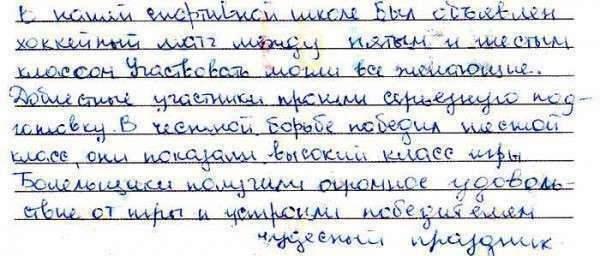 В нашей спортивной школе Был объевлен
хоккейный матч между пятым и шестым
классом Участвовать могли все желающие.
Доблестные участники прошли серьезную под-
готовку. В честной борьбе победил шестой
класс, они показали высокий класс игры
Болельщики получили огромное удоволь-
ствие от игры и устроили победителем
чудесный праздник